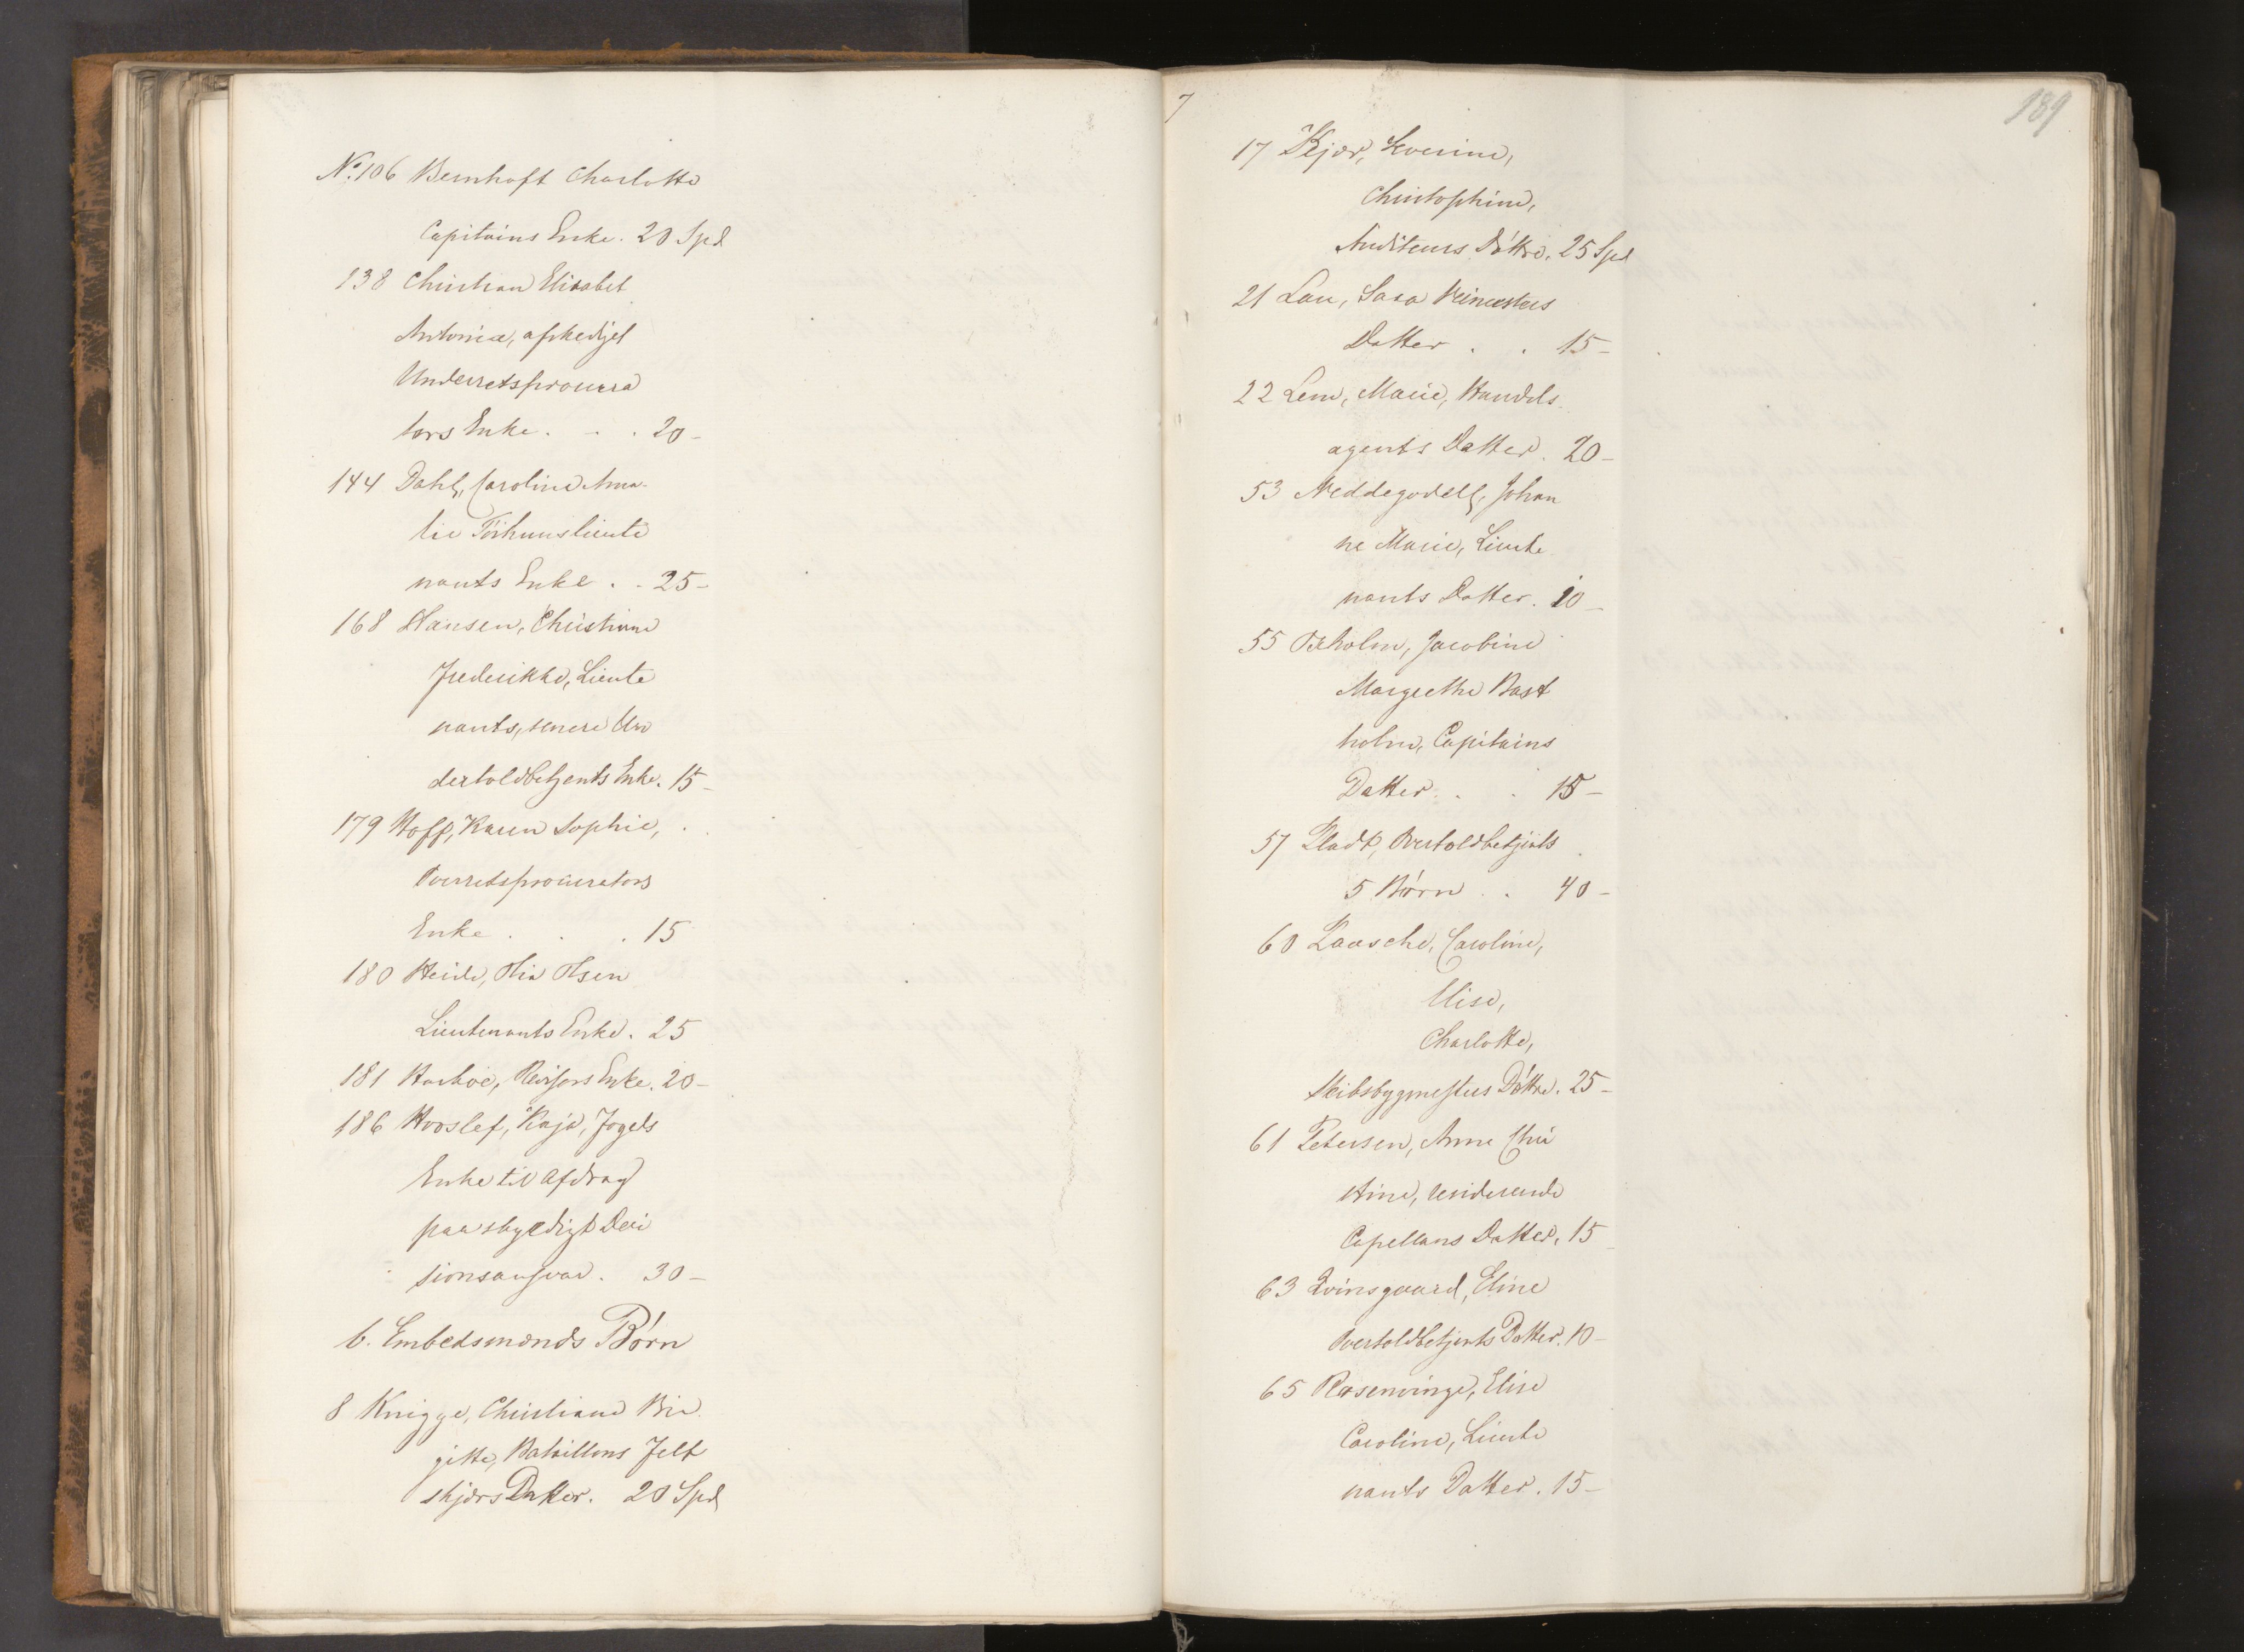 No. 106 Bernhoft Charlotte
Capitains Enke. 20 Spd
138 Christian Elisabet
Antonia, afskediget
Underretsprocura
tors Enke . . . 20 –
144 Dahl, Caroline Ama-
lie Töihuuslieute
nants Enke . . 25 –
168 Hansen, Christiane
Frederikke, Lieute
nants, senere Un
dertoldbetjents Enke. 15 –
179 Hoff, Karen Sophie,
Overretsprocurators
Enke . . . 15
180 Heide, Olia Olsen
Lieutenants Enke. 25
181 Harboe, Revisors Enke. 20 –
186 Hvoslef, Kaja, Fogeds
Enke til Afdrag
paa skyldigt Deci
sionsansvar. 30 –
b. Embedsmænds Børn
8 Knigge, Christiane Bir
gitte, Bataillons Felt
skjærs Datter. 20 Spd
7
189
17 Kjær, Severine,
Christophine,
Auditeurs Døttre. 25 Spd
21 Lau, Sara Veimesters
Datter . . 15 –
22 Lem, Marie, Handels
agents Datter. 20 –
53 Neddegodell, Johan
ne Marie, Lieute
nants Datter. 10 –
55 Oxholm, Jacobine
Margrethe Bast
holm, Capitains
Datter . . 15 –
57 Pladt, Overtoldbetjents
5 Børn . . 40 –
60 Paasche, Caroline,
Elise,
Charlotte,
Skibsbygmesters Døttre. 25 –
61 Petersen, Anne Chri
stine, residerende
Capellans Datter. 15
63 Qvinsgaard, Eline
Overtoldbetjents Datter. 10 –
65 Rosenvinge, Elise
Caroline, Lieute
nants Datter. 15 –